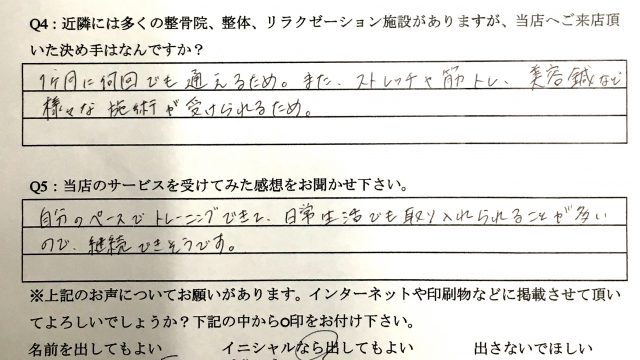 Q4：近隣には多くの整骨院、整体、リラクゼーション施設がありますが、当店へご来店頂
いた決め手はなんですか？
1ヶ月に何回でも通えるため。また、ストレッチや筋トレ、美容鍼など
様々な施術が受けられるため。
Q5：当店のサービスを受けてみた感想をお聞かせ下さい。
自分のペースでトレーニングできて、日常生活でも取り入れられることが多い
ので、継続できそうです。
※上記のお声についてお願いがあります。インターネットや印刷物などに掲載させて頂い
てよろしいでしょうか？下記の中から○印をお付け下さい。
名前を出してもよい　イニシャルなら出してもよい　出さないでほしい